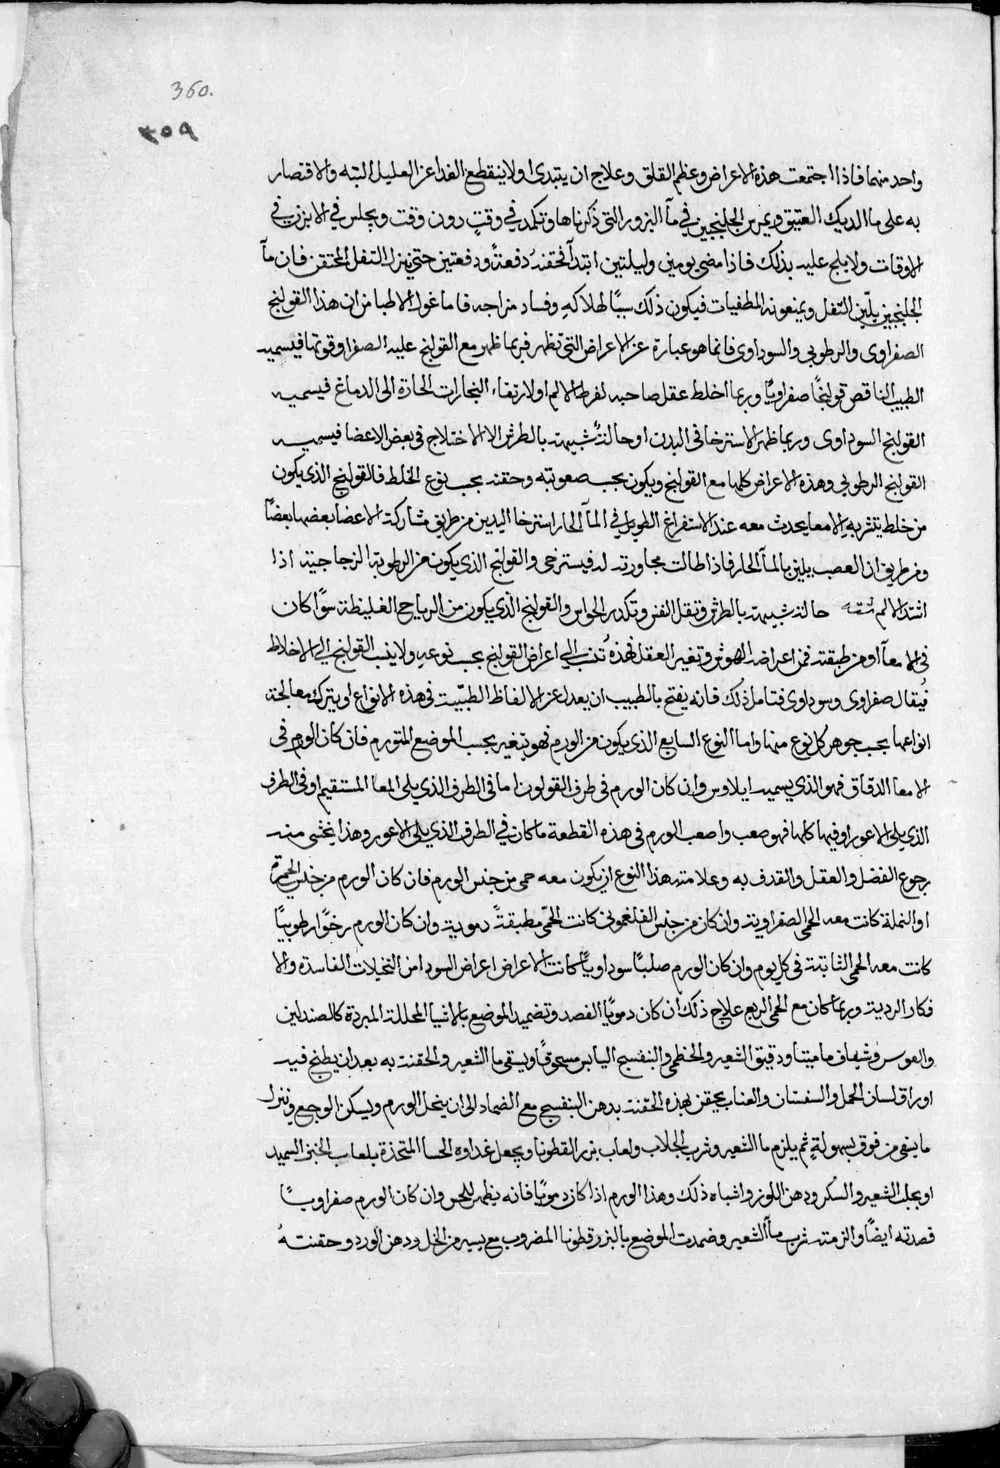 360.
٣٥٩
واحد منهما فاذا اجتمعت هذه الاعراض وعظم القلق وعلاج ان يبتدى اولا ينقطع الغدا عن العليل البتة والاقتصار
به على ما الديك العتيق ويمرس الجلنجبين في مآ البزور التى ذكرناها وتكمد في وقت دون وقت ويجلس في الابزن في
الاوقات ولا يلج عليه بذلك فاذا مضى يومين وليلتين ابتدأ فحقنه دفعةً ودفعتين حتى ينزل الثفل المحتقن فان مآ
الجلنجبين يليّن الثفل ويمنعونه المطفيات فيكون ذلك سببًا لهلاكه وفساد مزاجه فاما غول الاطبا من ان هذا القولنج
الصفراوى والرطوبي والسوداوى فانما هو عبارة عن الاعراض التى تظهر فربما ظهر مع القولنج عليه الصفرا وقوتها فيسميه
الطبيب الناقص قولنجًا صفراويًّا وربما اخلط عقل صاحبه لفرط الالم او لارتفاء البخارات الحارة الى الدماغ فيسميه
القولنج السوداوى وربما ظهر الاسترخا فى البدن او حالةٌ شبيهة بالطرش الا الاختلاج في بعض الاعضا فيسميه
القولنج الرطوبي وهذه الاعراض كلها مع القولنج ويكون بحسب صعوبته وحقنه بحسب نوع الخلط فالقولنج الذى يكون
من خلط يتشربه الامعا يحدث معه عند الاستفراغ الطويل في المآ الحار استرخا اليدين من طريق مشاركة الاعضا بعضها بعضًا
ومن طريق ان العصب يلين بالمآ الحار فاذا طالت مجاورته له فيسترخى والقولنج الذى يكون من الرطوبة الزجاجية اذا
اشتد الالم حالة شبيهة بالطرش وثقل الفن وتكدر الحواس والقولنج الذى يكون من الرياح الغليظة سوًا كان
في الامعآ او من طبقته فمن اعراضه الهوش وتغير العقل فهذه تُنسب الى اعراض القولنج بحسب نوعه ولا ينسب القولنج الى الاخلاط
فيُقال صفراوى وسوداوى فتامل ذلك فانه يقبح بالطبيب ان يعدل عن الالفاظ الطبيّة في هذه الانواع او يترك معالجة
انواعها بحسب جوهر كل نوع منها واما النوع السابع الذى يكون من الورم فهو يتغير بحسب الموضع المتورم فان كان الورم في
الامعا الدقاق فهو الذى يسميه ايلاوس وان كان الورم في طرف القولون اما في الطرف الذى يلى المعا المستقيم او في الطرف
الذى يلى الاعور او فيها كلها فهو صعب واصعب الورم في هذه القطعة ما كان في الطرف الذى يلى الاعور وهذا يخشى منه
رجوع الفضل والعقل والقذف به وعلامة هذا النوع ان يكون معه حمى من جنس الورم فان كان الورم من جنس الحمرة
او النملة كانت معه الحمى الصفراوية وان كان من جنس الفلغمونى كانت الحمّى مطبقةً دموية وان كان الورم رخوًا رطوبيًا
كانت معه الحمى الثابتة في كل يوم وان كان الورم صلبًا سوداويًا كانت الاعراض اعراض السودا من التخيلات الفاسدة والا
فكار الردية وربما كان مع الحمى الربع علاج ذلك ان كان دمويًا الفصد وتضميد الموضع بالاشيا المحللة المبردة كالصندلين
والفوس وشياف ماميتا ودقيق الشعير والخطمى والبنفسج اليابس مسحوقًا ويسقى ما الشعير والحقنة به بعد ان يطبخ فيه
اوراق لسان الحمل والسفستان والعناب يحقن بهذه الحقنة بدهن البنفسج مع الضماد الى ان ينحل الورم ويسكن الوجع وينزل
ما ينفى من فوق بسهولةٍ ثم يلزم ما الشعير وشرب الجلاب ولعاب بزر القطونا ويجعل غداوه الحسا المتخذة بلعاب الخبز السميد
او بجلب الشعير والسكر ودهن اللوز واشباه ذلك وهذا الورم اذا كان دمويًا فانه يظهر للحس وان كان الورم صفراويًا
فصدته ايضًا والزمته شرب مآ الشعير وضمدت الموضع بالبزر قطونا المضروب مع يسير من الخل ودهن الورد وحقنتهُ